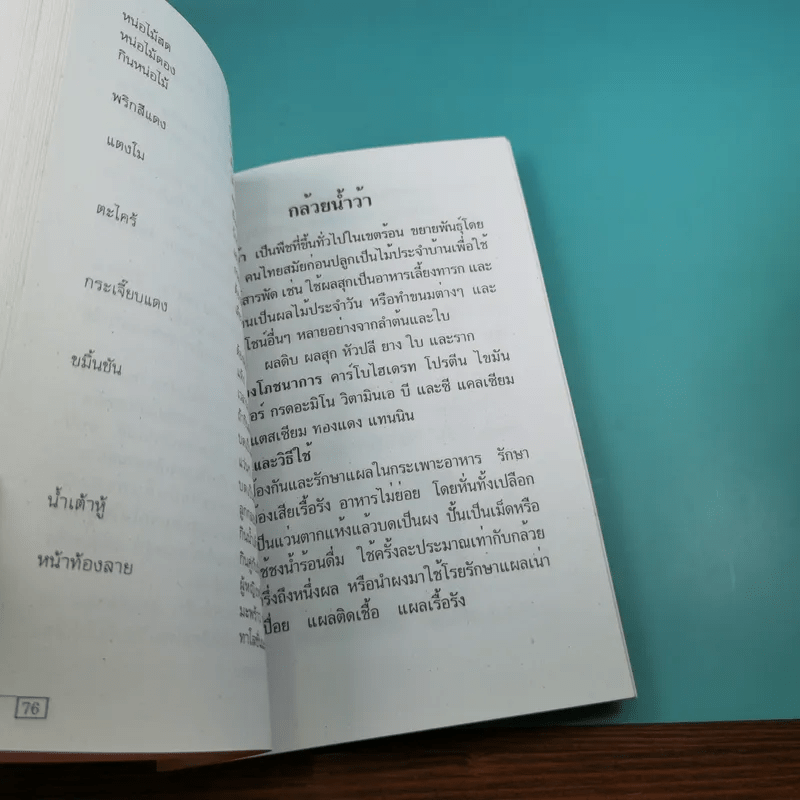 หน่อไม้สด
หน่อไม้ดอง
กินหน่อไม้
พริกสีแดง
แตงโม
ตะไคร้
กระเจี๊ยบแดง
ขมิ้นชัน
น้ำเต้าหู้
หน้าท้องลาย
76
กล้วยน้ำว้า
เป็นพืชที่ขึ้นทั่วไปในเขตร้อน ขยายพันธุ์โดย
คนไทยสมัยก่อนปลูกเป็นไม้ประจำบ้านเพื่อใช้
สารพัด เช่น ใช้ผลสุกเป็นอาหารเลี้ยงทารก และ
เป็นผลไม้ประจำวัน หรือทำขนมต่างๆ และ
โยชน์อื่นๆ หลายอย่างจากลำต้นและใบ
ผลดิบ ผลสุก หัวปลี ยาง ใบ และราก
งโภชนาการ คาร์โบไฮเดรท โปรตีน ไขมัน
อร์ กรดอะมิโน วิตามินเอ บี และซี แคลเซียม
แตสเซียม ทองแดง แทนนิน
และวิธีใช้
องกันและรักษาแผลในกระเพาะอาหาร รักษา
องเสียเรื้อรัง อาหารไม่ย่อย โดยหั่นทั้งเปลือก
เป็นแว่นตากแห้งแล้วบดเป็นผง ปั้นเป็นเม็ดหรือ
ชงน้ำร้อนดื่ม ใช้ครั้งละประมาณเท่ากับกล้วย
รึ่งถึงหนึ่งผล หรือนำผงมาใช้โรยรักษาแผลเน่า
ปื่อย แผลติดเชื้อ แผลเรื้อรัง